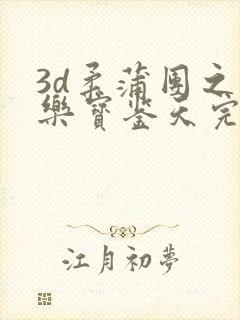 3d柔蒲团之
乐宝鉴天完
江月初梦